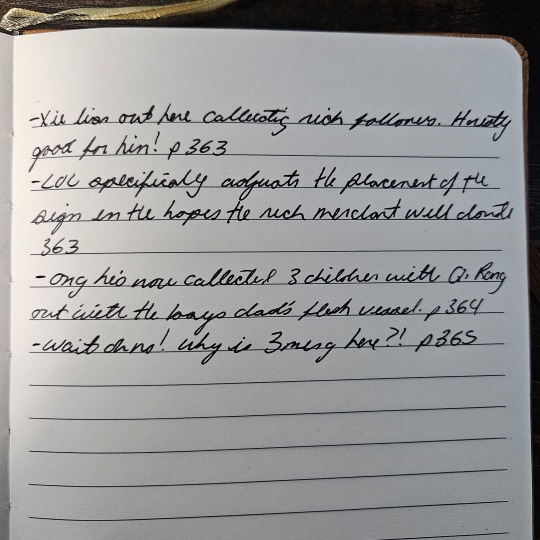 -Xie lian out here collecting rich followers. Honestly
good for him! p363
-LOL specifically adjusts the placement of the
sign in the hopes the rich merchant will donate
363
-omg he's now collected 3 children with Qi Rong
out with the boys dad's flesh vessel. p364
-wait oh no! why is here?! p365